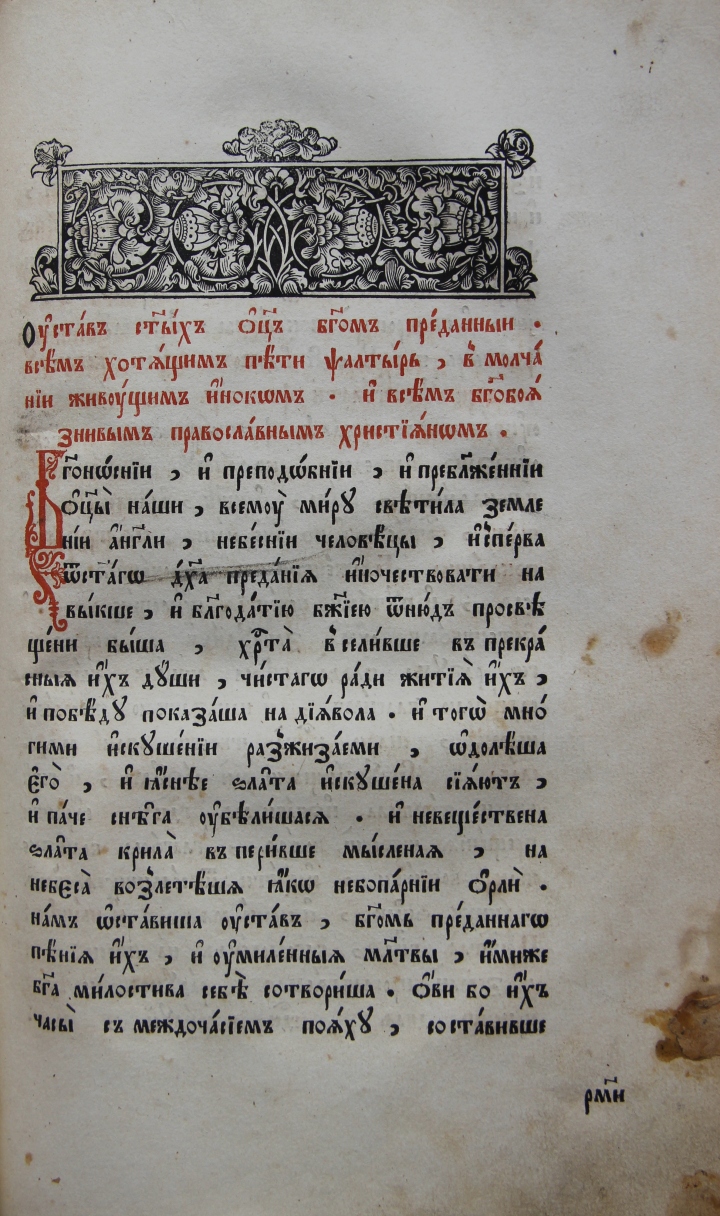 Оу҆ста́въ ст҃ы́хъ ѻ҆ц҃ъ бг҃омъ пре́данныи .
всѣ́мъ хотѧ́щимъ пѣ́ти ѱалты́рь , в̾ молча́
нїи живꙋ́щимъ и҆́нокѡмъ . и҆ всѣ́мъ бг҃обоѧ́
знивымъ правосла́внымъ христїѧ́нѡмъ .
Бг҃оно́снїи , и҆ преподо́бнїи , и҆ пребл҃же́ннїи
ѻ҆ц҃ы̀ на́ши , всемꙋ̀ ми́рꙋ свѣти́ла земле
нїи а҆́нг҃ли , небе́снїи человѣ́цы , и҆спе́рва
ѿст҃а́гѡ дх҃а преда́нїѧ и҆́ночествовати на
вы́кше , и҆ блг҃ода́тїю бж҃їею ѿню́дъ просвѣ
ще́ни бы́ша , хрⷭ҇та̀ в̾сели́вше въ прекра́
сныѧ и҆́хъ дꙋ́ши , чи́стагѡ ра́ди житїѧ̀ и҆́хъ ,
и҆ побѣ́дꙋ показа́ша на дїѧ́вола . и҆ тогѡ̀ мно́
гими и҆скꙋше́нїи раз̾жиза́еми , ѡ҆долѣ́ша
є҆го̀ , и҆ ꙗ҆́снѣе ѕла́та и҆скꙋше́на сїѧ́ютъ ,
и҆ па́че снѣ́га ᲂу҆бѣли́шасѧ . и҆ невеще́ствена
ѕла́та крила̀ въ пери́вше мы́сленаѧ , на
небеса̀ воз̾летѣ́шѧ ꙗ҆́кѡ небопа́рнїи ѻ҆рлѝ .
на́мъ ѡ҆ста́виша ᲂу҆ста́въ , бг҃омъ пре́даннагѡ
пѣ́нїѧ и҆́хъ , и҆ ᲂу҆миле́нныѧ мл҃твы , и҆́миже
бг҃а ми́лостива себѣ̀ сотвори́ша . ѻ҆́ви бо и҆́хъ
часы̀ съ междоча́сїемъ поѧ́хꙋ , соста́вивше
рм҃и